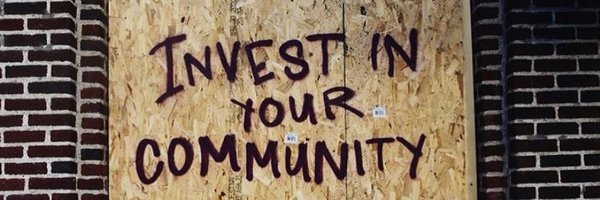 INVEST IN
YOUR
COMMUNITY